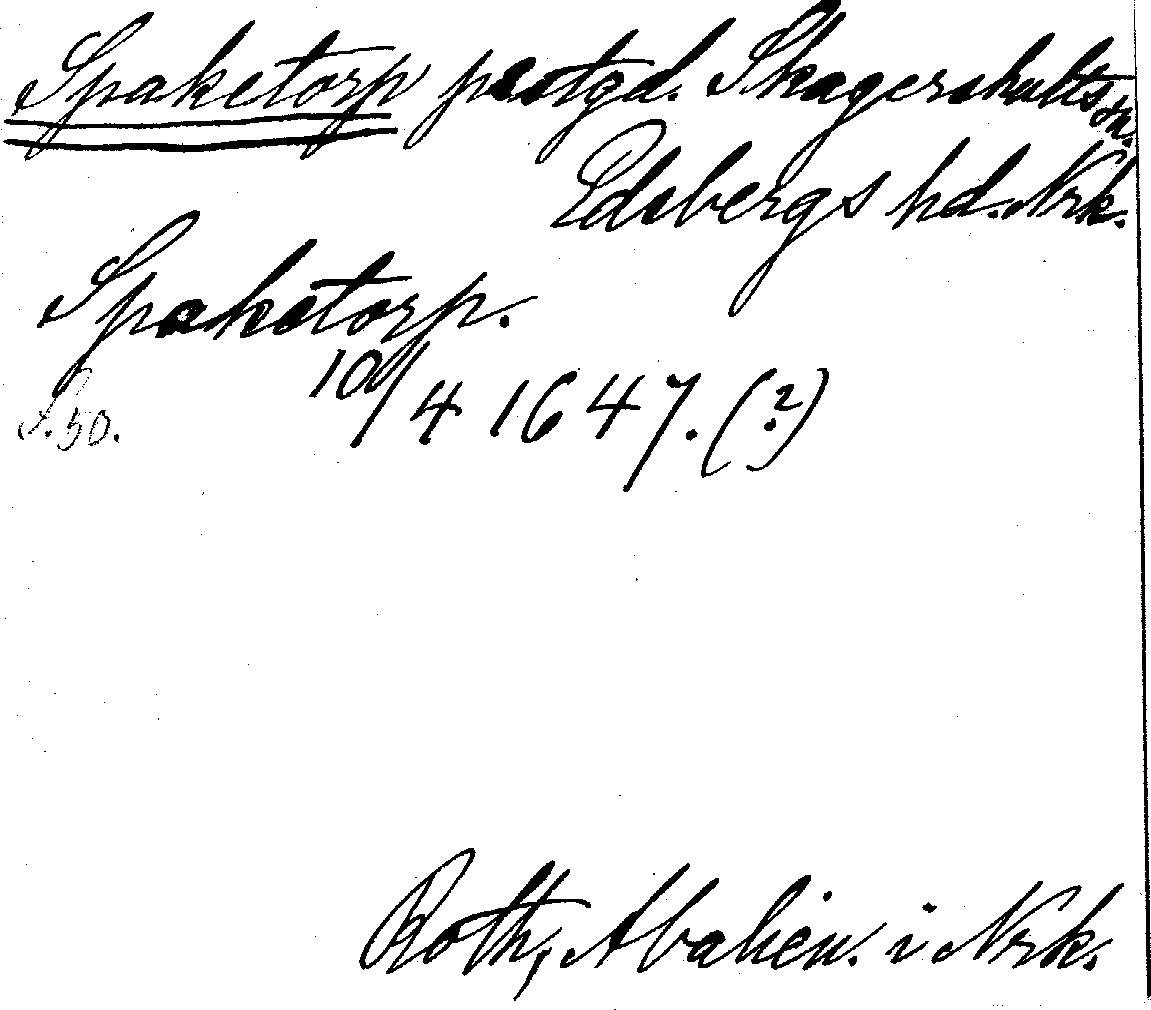 Spaketorp prstgd. Skagershults sn.
Edsbergs hd. Nrk.
Spaketorp.
10/4 1647. (?)
S. 50.
Roth, Abalien. i Nrk.